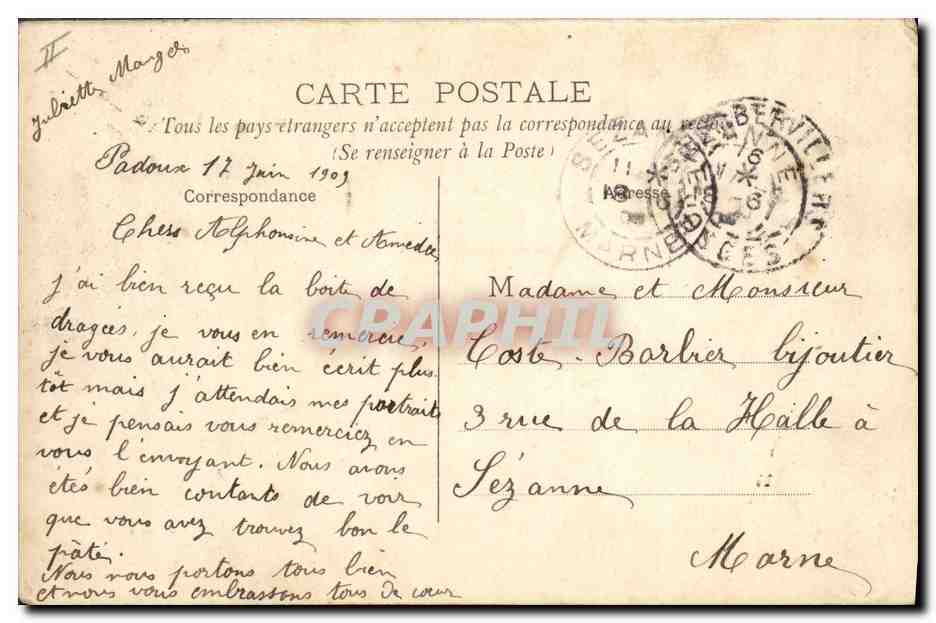 II
Juliette
CARTE POSTALE
Tous les pays étrangers n'acceptent pas la correspondance au recto
(Se renseigner à la Poste)
Padoux 17 Juin 1909
Correspondance
Adresse
Chers Alphonsine et Amedée
j'ai bien reçu la boite de
dragées, je vous en remercie,
je vous aurait bien écrit plus
tôt mais j'attendais mes portraits
et je pensais vous remerciez en
vous l'envoyant. Nous avons
étés bien contants de voir
que vous avez trouvez bon le
pâté.
Nous nous portons tous bien
et nous vous embrassons tous de cœur
Madame et Monsieur
Coste-Barbier bijoutier
3 rue de la Halle à
Sézanne
Marne
SEZANNE
MARNE
VOSGES
CRAPHIL